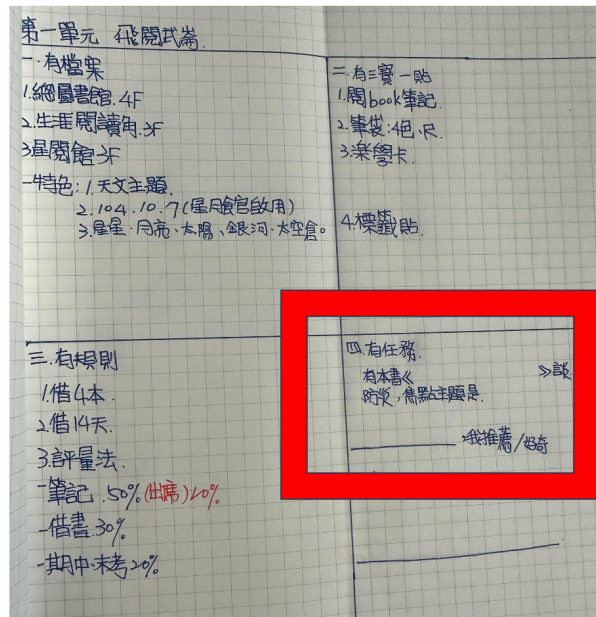 第一單元 飛閱武崙.
一.有檔案
1.總圖書館.4F
2.生涯閱讀角.3F
3.星閱館3F
-特色:1.天文主題.
2.104.10.7(星月館啟用)
3.星星.月亮、太陽、銀河.太空倉。
二.有三寶一貼
1.閱book筆記.
2.筆袋:4色.尺.
3.樂學卡.
4.標籤貼.
三.有規則
1.借4本.
2.借14天.
3.評量法.
-筆記.50%(出席)20%
-借書.30%
-期中.末考20%
四.有任務.
有本書《 》談
防災,焦點主題是.
,我推薦/好奇